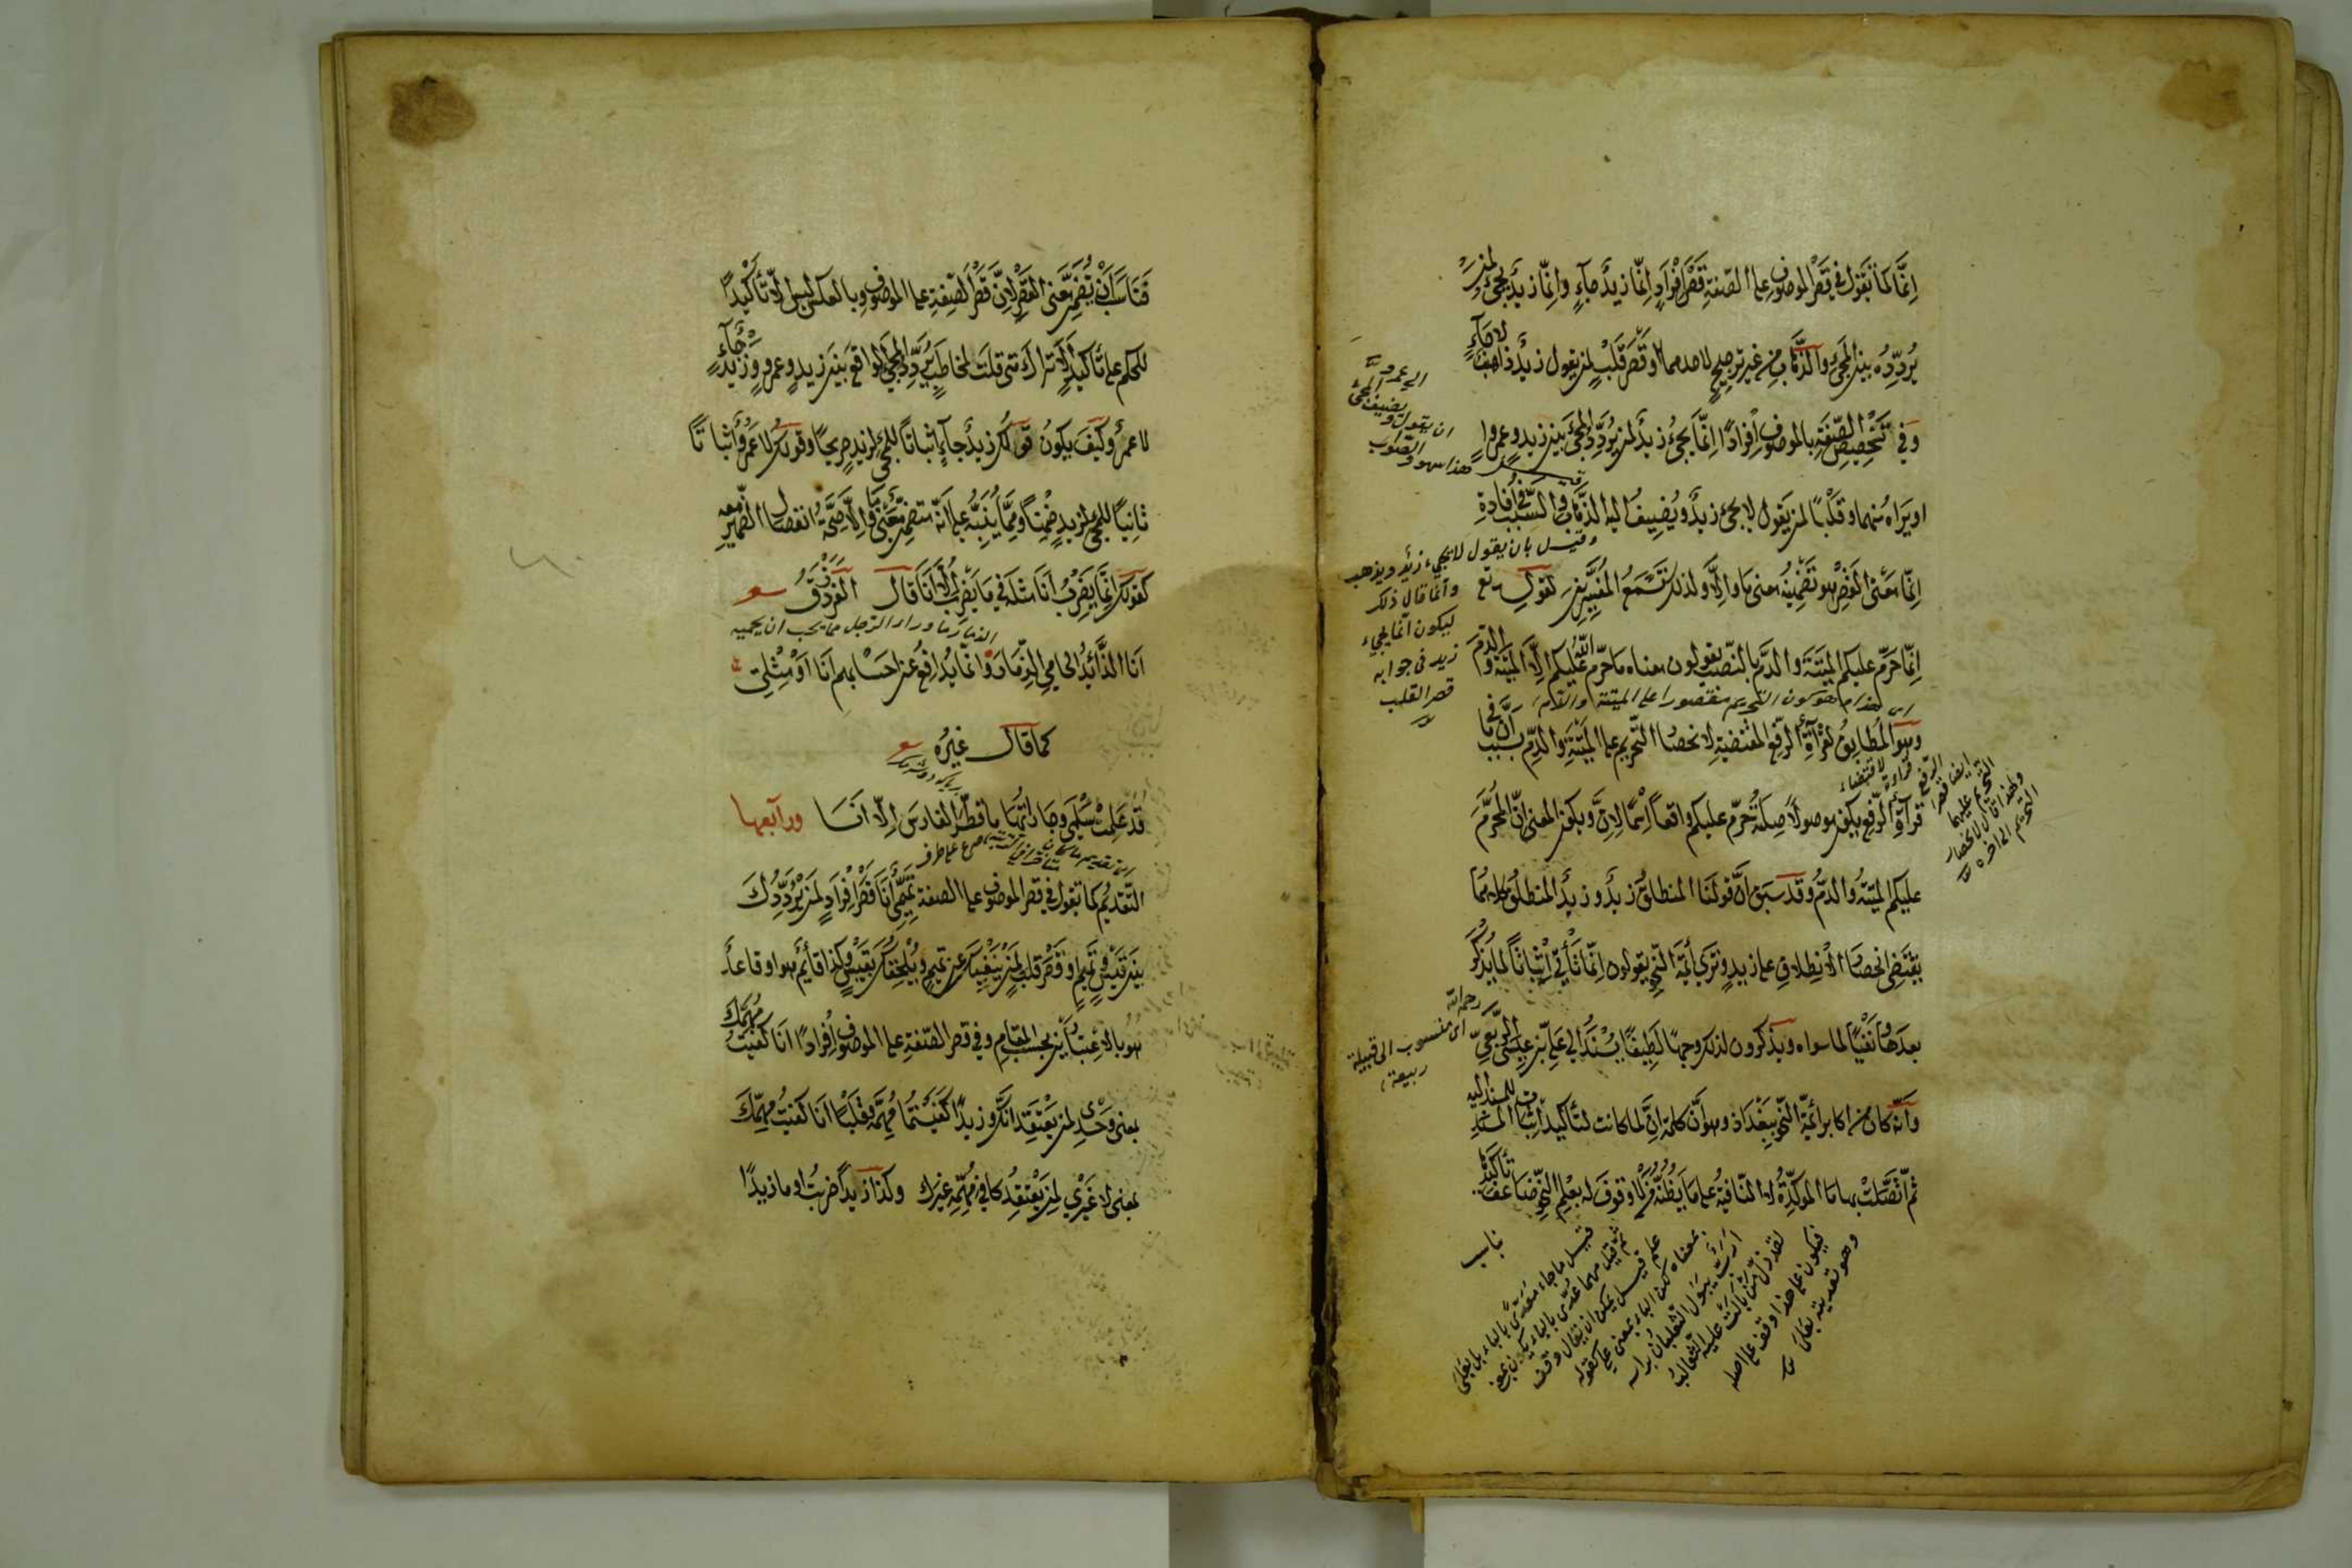 إنّما كما تقول في قصر الموصوف على الصفة قصر إفراد إنّما زيد جاءٍ وإنّما زيد يجيء لمن
يردّده بين المجيء والذهاب من غير ترجيح لاحدهما وقصر قلب لمن يقول زيد ذاهب لا جاءٍ
وفي تخصيص الصفة بالموصوف إفرادا إنّما يجيء زيد لمن يردّد المجيء بين زيد وعمرو
او يراه منهما وقلبا لمن يقول لا يجيء زيد ويضيف اليه الذهاب والسبب في إفادة
إنّما معنى القصر هو تضمينه معنى ما وإلّا ولذلك تسمع المفسّرين لقوله تع
إنّما حرّم عليكم الميتة والدم بالنصب يقولون معناه ما حرّم الله عليكم إلّا الميتة والدم
وهو المطابق لقراءة الرفع المقتضية لانحصار التحريم على الميتة والدم بسبب أنّ ما في
قراءة الرفع يكون موصولا صلته حرّم عليكم واقعا اسما لإنّ ويكون المعنى إنّ المحرّم
عليكم الميتة والدم وقد سبق أنّ قولنا المنطلق زيد وزيد المنطلق كلاهما
يقتضي انحصار الانطلاق على زيد وترى أئمة النحو يقولون إنّما تأتي إثباتا لما يذكر
بعدها ونفيا لما سواه ويذكرون لذلك وجها لطيفا يسند إلى علي بن عيسى الربعي
وأنّه كان من اكابر أئمة النحو ببغداد وهو أنّ كلمة إنّ لما كانت لتأكيد إثبات المسند للمسند اليه
ثم اتصلت بها ما المؤكدة لا النافية على ما يظنّه من لا وقوف له بعلم النحو ضاعف تأكيدها
ناسب
الى عمرو
ان يقول ويضيف المجيء
هذا سهو والصواب
وقيل بان يقول لا يجيء زيد ويذهب
وانما قال ذلك
ليكون انما يجيء
زيد في جوابه
قصر القلب
رحمه الله
اى منسوب الى قبيلة
ربيعة
قيل ما جاء معدّى بالباء بل بعلى
لقد ذلّ من بالت عليه الثعالب
فيكون على هذا وقف على اصله
وهو تعديته بعلى
فناسب أن يضمّن معنى القصر لأنّ قصر الصفة على الموصوف وبالعكس ليس إلّا تأكيدا
للحكم على تأكيد ألا تراك متى قلت لمخاطب يردّد المجيء الواقع بين زيد وعمرو زيد جاءٍ
لا عمرو كيف يكون قولك زيد جاءٍ إثباتا للمجيء لزيد صريحا وقولك لا عمرو إثباتا
ثانيا للمجيء لزيد ضمنا وممّا ينبّه على أنّه متضمّن معنى ما وإلّا صحّة انفصال الضمير معه
كقولك إنّما يضرب أنا مثله في ما يضرب إلّا أنا قال الفرزدق
أنا الذائد الحامي الذمار وإنّما يدافع عن احسابهم أنا أو مثلي
كما قال غيره
قد علمت سلمى وجاراتها ما قطّر الفارس إلّا أنا ورابعها
التقديم كما تقول في قصر الموصوف على الصفة تميميّ أنا قصر إفراد لمن يردّدك
بين قيس وتميم او قصر قلب لمن ينفيك عن تميم ويلحقك بقيس وكذا قائم هو او قاعد
هو بالاعتبارين بحسب المقام وفي قصر الصفة على الموصوف إفرادا أنا كفيت مهمّك
بمعنى وحدي لمن يعتقد أنّك وزيدا كفيتما مهمّه وقلبا أنا كفيت مهمّك
بمعنى لا غيري لمن يعتقد كافي مهمّه غيرك وكذا زيدا ضربت او ما زيدا